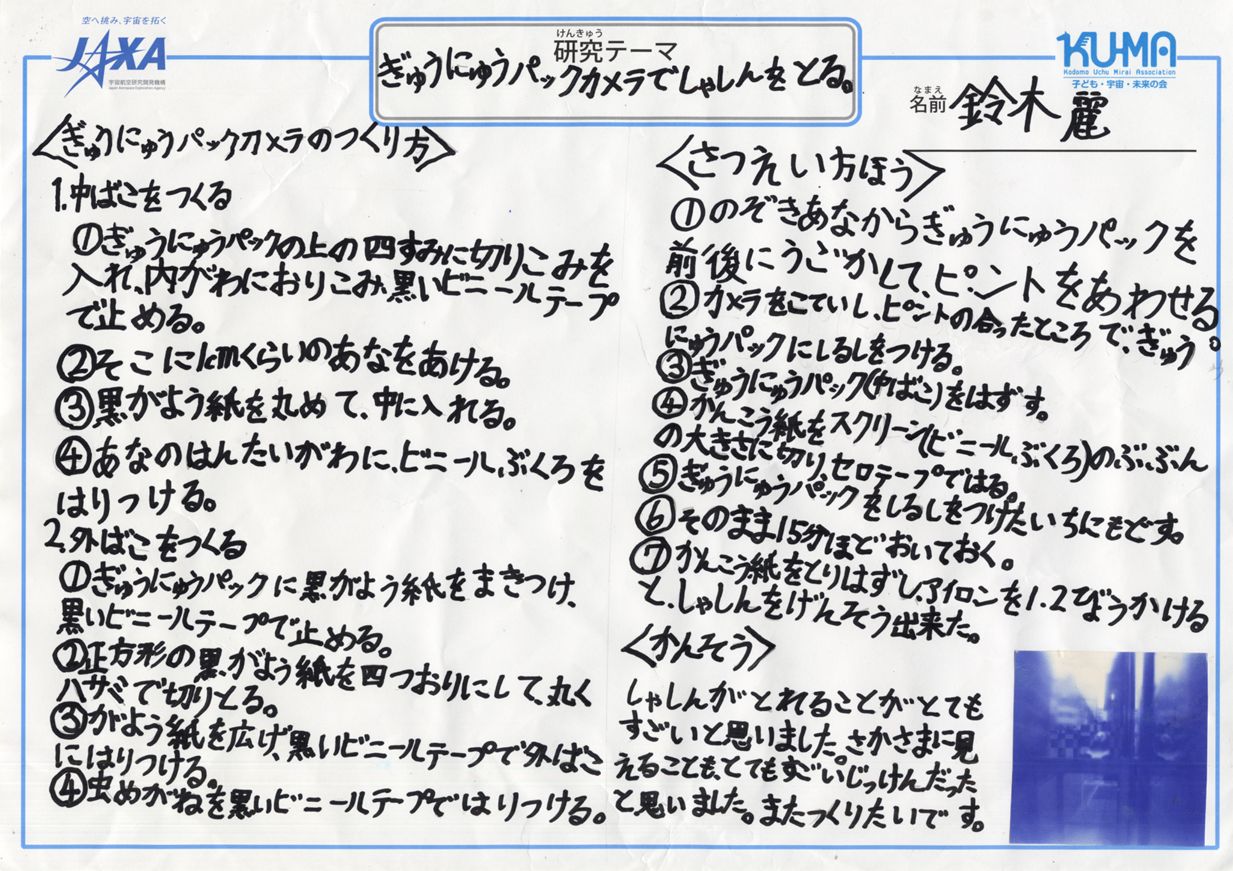 空へ挑み、宇宙を拓く
JAXA
宇宙航空研究開発機構
Japan Aerospace Exploration Agency
けんきゅう
研究テーマ
ぎゅうにゅうパックカメラでしゃしんをとる。
KU-MA
Kodomo Uchu Mirai Association
子ども・宇宙・未来の会
なまえ
名前 鈴木 麗
〈ぎゅうにゅうパックカメラのつくり方〉
1.中ばこをつくる
①ぎゅうにゅうパックの上の四すみに切りこみを
入れ、内がわにおりこみ、黒いビニールテープ
で止める。
②そこに1cmくらいのあなをあける。
③黒がよう紙を丸めて、中に入れる。
④あなのはんたいがわに、ビニールぶくろを
はりつける。
2.外ばこをつくる
①ぎゅうにゅうパックに黒がよう紙をまきつけ、
黒いビニールテープで止める。
②正方形の黒がよう紙を四つおりにして、丸く
ハサミで切りとる。
③がよう紙を広げ、黒いビニールテープで外ばこ
にはりつける。
④虫めがねを黒いビニールテープではりつける。
〈さつえい方ほう〉
①のぞきあなからぎゅうにゅうパックを
前後にうごかして、ピントをあわせる。
②カメラをこていし、ピントの合ったところで、ぎゅう
にゅうパックにしるしをつける。
③ぎゅうにゅうパック(中ばこ)をはずす。
④かんこう紙をスクリーン(ビニールぶくろ)のぶぶん
の大きさに切り、セロテープではる。
⑤ぎゅうにゅうパックをしるしをつけたいちにもどす。
⑥そのまま15分ほどおいておく。
⑦かんこう紙をとりはずし、アイロンを1.2びょうかける
と、しゃしんをげんそう出来た。
〈かんそう〉
しゃしんがとれることがとても
すごいと思いました。さかさまに見
えることも、とてもすごいじっけんだった
と思いました。またつくりたいです。